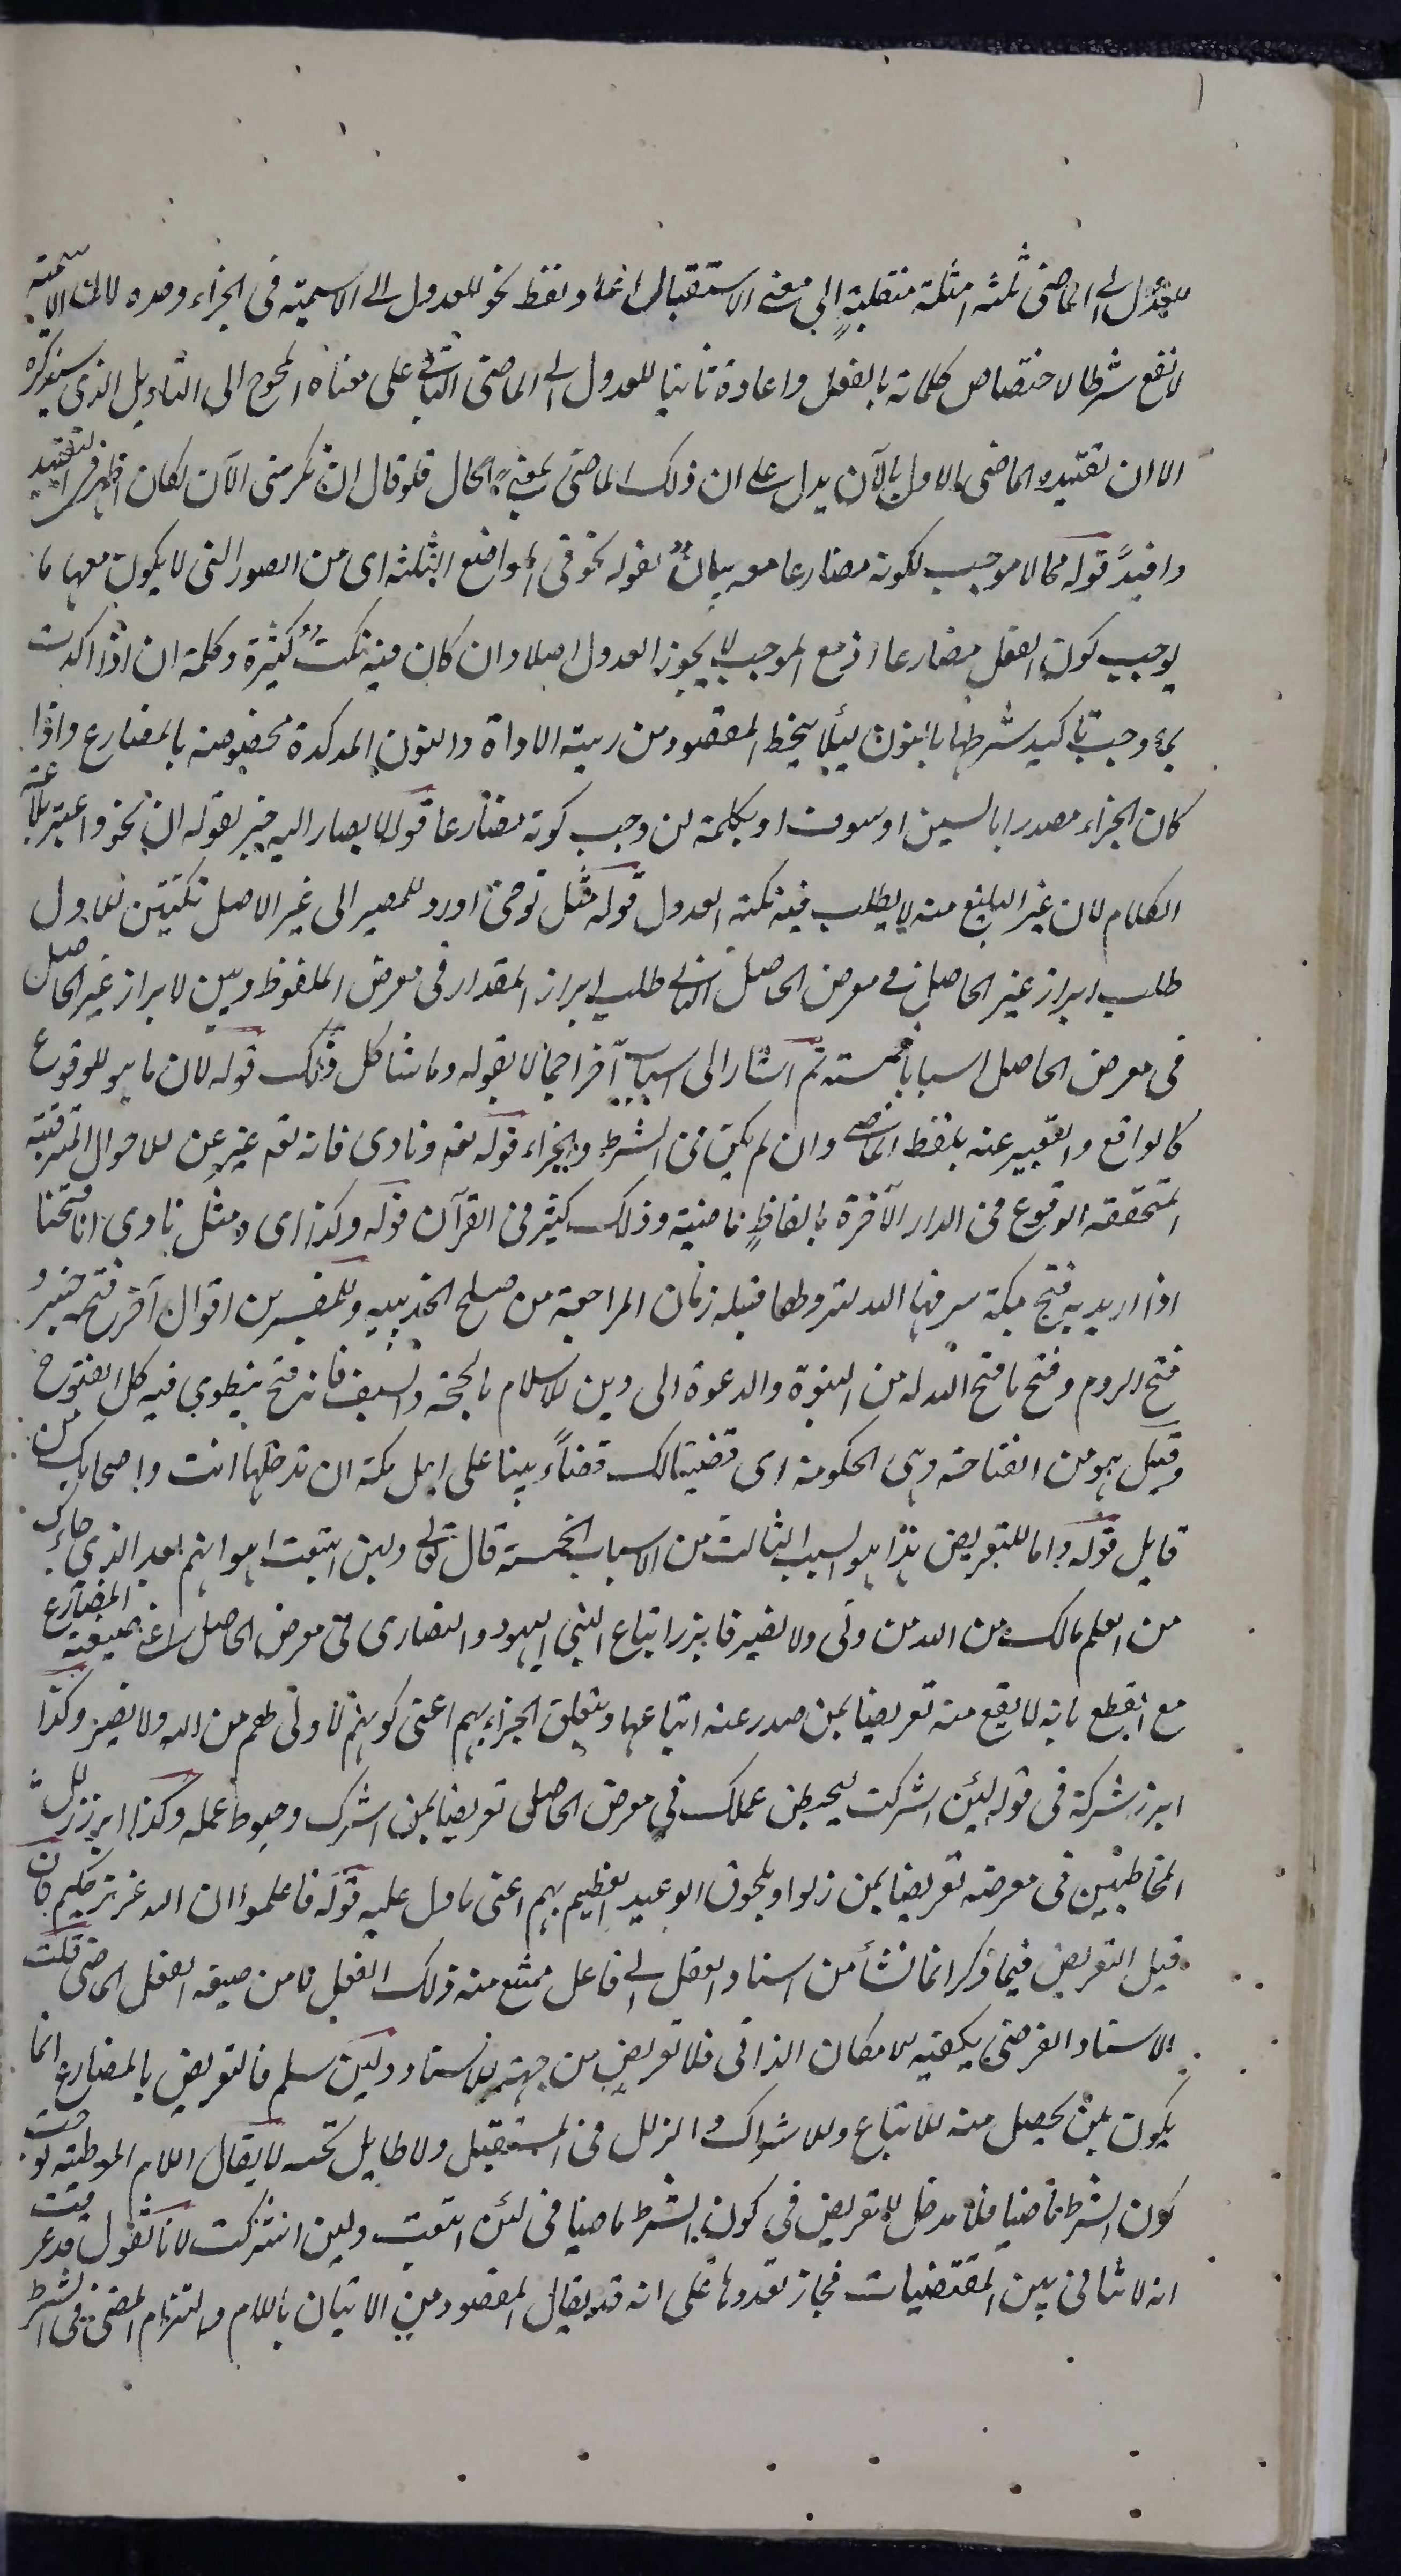 للعدول الى الماضى ثلثة امثلة منقلبةٍ الى معنى الاستقبال لفظا فقط نحو للعدول الى الاسمية فى الجزاء وحده لان الاسمية
لا تقع شرطا لاختصاص كلماته بالفعل واعادة ثانيا للعدول الى الماضى الباقى على معناه المحوج الى التاويل الذى سيذكره
الا ان تقييده الماضى الاول بالآن يدل على ان ذلك الماضى بمعنى الحال فلو قال ان تكرمنى الآن لكان اظهر فى التقييد
وافيد قوله مما لا موجب لكونه مضارعا معه بيان لقوله نحو فى المواضع الثلثة اى من الصور التى لا يكون معها ما
يوجب كون الفعل مضارعا اذ مع الموجب لا يجوز العدول اصلا وان كان فيه نكتٌ كثيرة وكلمة ان اذا اكدت
بما وجب تاكيد شرطها بالنون ليلا ينحط المقصود من رتبة الاداة والنون الموكدة مخصوصة بالمضارع واذا
كان الجزاء مصدرا بالسين او سوف او بكلمة لن وجب كونه مضارعا قوله لا يصار اليه خبر لقوله ان نحو واعتبر بلاغة
الكلام لان غير البليغ منه لا يطلب فيه نكتة العدول قوله مثل توخى اورد للمصير الى غير الاصل نكتتين الاول
طلب ابراز غير الحاصل فى معرض الحاصل الثانى طلب ابراز المقدار فى معرض الملفوظ وبين لابراز غير الحاصل
فى معرض الحاصل اسبابا خمسة ثم اشار الى اسباب آخر اجمالا بقوله وما شاكل ذلك قوله لان ما هو للوقوع
كالواقع والتعبير عنه بلفظ الماضى وان لم يكن فى الشرط والجزاء قوله نعم ونادى فانه نعم عبر عن الاحوال المترقبة
المتحققة الوقوع فى الدار الآخرة بالفاظٍ ماضية وذلك كثير فى القرآن قوله وكذا اى ومثل نادى انا فتحنا
اذا اريد به فتح مكة شرفها الله لنزولها قبله زمان المراجعة من صلح الحديبيه وللمفسرين اقوال آخر فتح خيبر و
فتح الروم وفتح ما فتح الله له من النبوة والدعوة الى دين الاسلام بالحجة والسيف فانه فتح ينطوى فيه كل الفتوح
وقيل هو من الفتاحة وهى الحكومة اى قضينا لك قضاءً بينا على اهل مكة ان تدخلها انت واصحابك من
قابل قوله واما للتعريض هذا هو السبب الثالث من الاسباب الخمسة قال تعالى ولئن اتبعت اهوائهم بعد الذى جاءك
من العلم مالك من الله من ولى ولا نصير فابرز اتباع النبى اليهود والنصارى فى معرض الحاصل راغبا صيغة المضارع
مع القطع بانه لا يقع منه تعريضا بمن صدر عنه اتباعها وتعلق الجزاء بهم اعنى كونهم لا ولى لهم من الله ولا نصير وكذا
ابرز شركه فى قوله لئن اشركت ليحبطن عملك فى معرض الحاصل تعريضا بمن اشرك وحبوط عمله وكذا ابرز زلل
المخاطبين فى معرضه تعريضا بمن زلوا ولحوق الوعيد العظيم بهم اعنى ما دل عليه قوله فاعلموا ان الله عزيز حكيم فان
قيل التعريض فيما ذكر انما نشأ من اسناد الفعل الى فاعل ممتنع منه ذلك الفعل لا من صيغة الفعل الماضى قلت
الاسناد الفرضى يكفيه الامكان الذاتى فلا تعريض من جهة الاسناد ولئن سلم فالتعريض بالمضارع انما
يكون بمن يحصل منه الاتباع والاشراك والزلل فى المستقبل ولا طايل تحته لا يقال اللام الموطئة
كون الشرط ماضيا فلا مدخل للتعريض فى كون الشرط ماضيا فى لئن اتبعت ولئن اشركت لانا نقول قد عرفت
انه لا تنافى بين المقتضيات فجاز تعددها على انه قد يقال المقصود من الاتيان باللام والتزام المضى فى الشرط